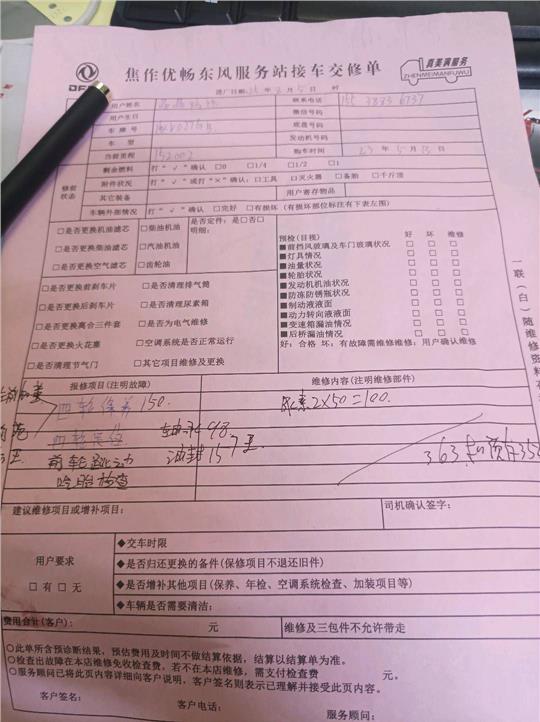 真美满服务
ZHENMEIMANFUWU
焦作优畅东风服务站接车交修单
进厂日期: 年 月 5 日 时
用户姓名
联系电话 155 3883 6737
用户生日
微信号码
车牌号
底盘号码
车型
发动机号码
当前里程 152002
购车时间 23 年 5 月 日
修前状态
剩余燃料 打“√”确认 □0 □1/4 □1/2 □1
附件状况 打“√”或打“×”确认:□工具 □灭火器 □备胎 □千斤顶
其它装备
用户寄存物品
车辆外部情况 打“√”确认 □完好 □有损坏(有损坏部位标注有下表左图)
□是否更换机油滤芯 □柴油机油 是否定件:是□否□
明细:
□是否更换柴油滤芯 □汽油机油
□是否更换空气滤芯 □齿轮油
□是否更换前刹车片 □是否清理排气筒
□是否更换后刹车片 □是否清理尿素箱
□是否更换离合三件套 □是否为电气维修
□是否更换火花塞 □空调系统是否正常运行
□是否清理节气门 □其它项目维修及更换
预检(目检) 好 坏 维修
■前挡风玻璃及车门玻璃状况 □ □ □
■灯具情况 □ □ □
■油量状况 □ □ □
■轮胎状况 □ □ □
■发动机机油状况 □ □ □
■防冻防锈瓶状况 □ □ □
■制动液液面 □ □ □
■动力转向液液面 □ □ □
■变速箱漏油情况 □ □ □
■后桥漏油情况 □ □ □
好:合格 坏:有故障需维修维修:用户确认维修
一联(白)随维修资料
报修项目(注明故障)
维修内容(注明维修部件)
四轮保养 150.
尿素2×50=100.
四轮
轴承48.
前轮跳动
油封15
吃胎检查
363
建议维修项目或增补项目:
司机确认签字:
用户要求
□有 □无
◆交车时限
◆是否归还更换的备件(保修项目不退还旧件)
◆是否增补其他项目(保养、年检、空调系统检查、加装项目等)
◆车辆是否需要清洁:
费用合计(客户): 元
维修及三包件不允许带走
○此单所含预诊断结果,预估费用及时间不做结算依据,结算以结算单为准。
○检查出故障在本店维修免收检查费,若不在本店维修,需支付检查费 元。
○服务顾问已将此页内容详细向客户说明,客户签名则表示已理解并接受此页内容。
客户签名: 客户电话: 服务顾问: